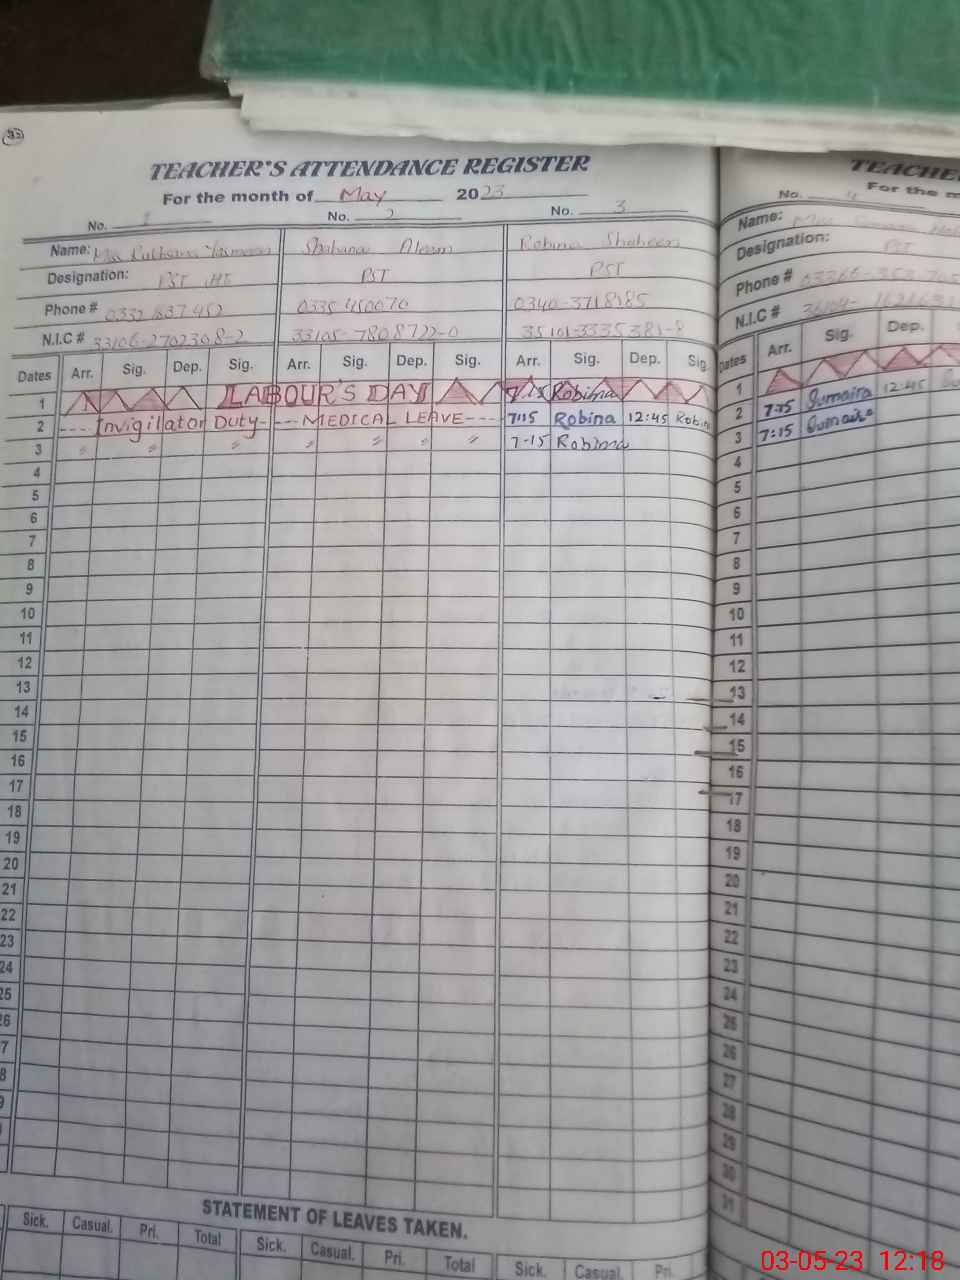 32
TEACHER'S ATTENDANCE REGISTER
For the month of May 2023
No. 1 No. 2 No. 3
Name: Yasmeen Shabana Robina Shaheen
Designation: PST PST PST
Phone #
N.I.C # 33105-7808722-0
Dates Arr. Sig. Dep. Sig. Arr. Sig. Dep. Sig. Arr. Sig. Dep. Sig
1 LABOUR'S DAY 7:15 Robina
2 ---- Invigilator Duty- --- MEDICAL LEAVE---- 7:15 Robina 12:45 Robin
3 〃 〃 〃 〃 〃 〃 〃 7-15 Robina
4
5
6
7
8
9
10
11
12
13
14
15
16
17
18
19
20
21
22
23
24
25
26
7
8
9
STATEMENT OF LEAVES TAKEN.
Sick. Casual. Pri. Total Sick. Casual. Pri. Total Sick. Casual. Pri.
TEACHE
For the m
No. 4
Name:
Designation: PST
Phone #
N.I.C #
Dates Arr. Sig. Dep.
1
2 7:15 Sumaira 12:45
3 7:15 Sumaira
4
5
6
7
8
9
10
11
12
13
14
15
16
17
18
19
20
21
22
23
24
25
26
27
28
29
30
31
03-05-23 12:18